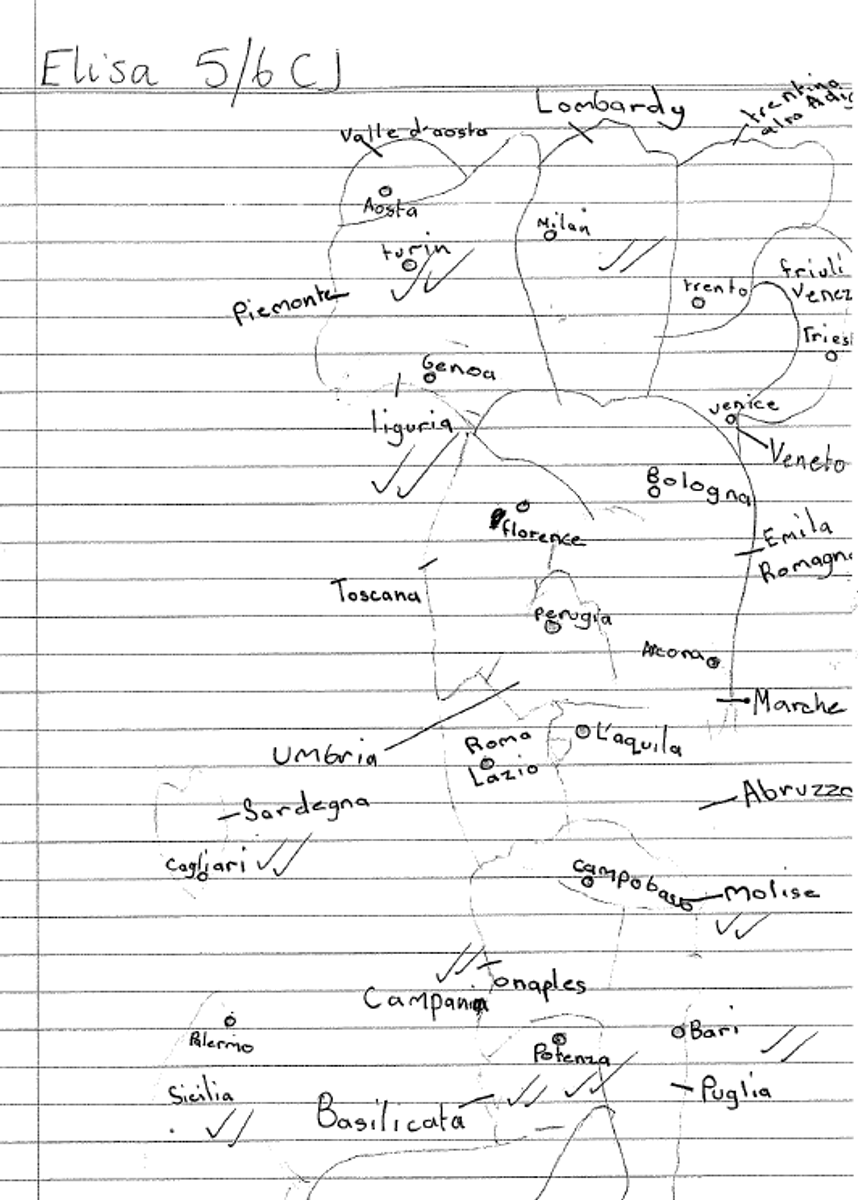 Elisa 5/6 CJ
Lombardy
trentino
alto Adig
Valle d'aosta
Aosta
Milan
turin
friuli
Venez
trento
Piemonte
Triest
Genoa
venice
liguria
Veneto
Bologna
florence
Emila
Romagna
Toscana
perugia
Ancona
Marche
Umbria
Roma
L'aquila
Lazio
Abruzzo
Sardegna
Cagliari
campobasso
Molise
naples
Campania
Palermo
Bari
Potenza
Puglia
Sicilia
Basilicata